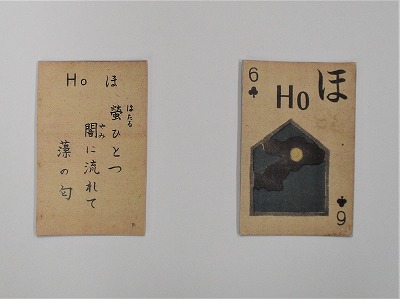 Ho ほ
螢ひとつ
はたる
闇に流れて
やみ
藻の匂
6
♣
Ho
ほ
♣
6